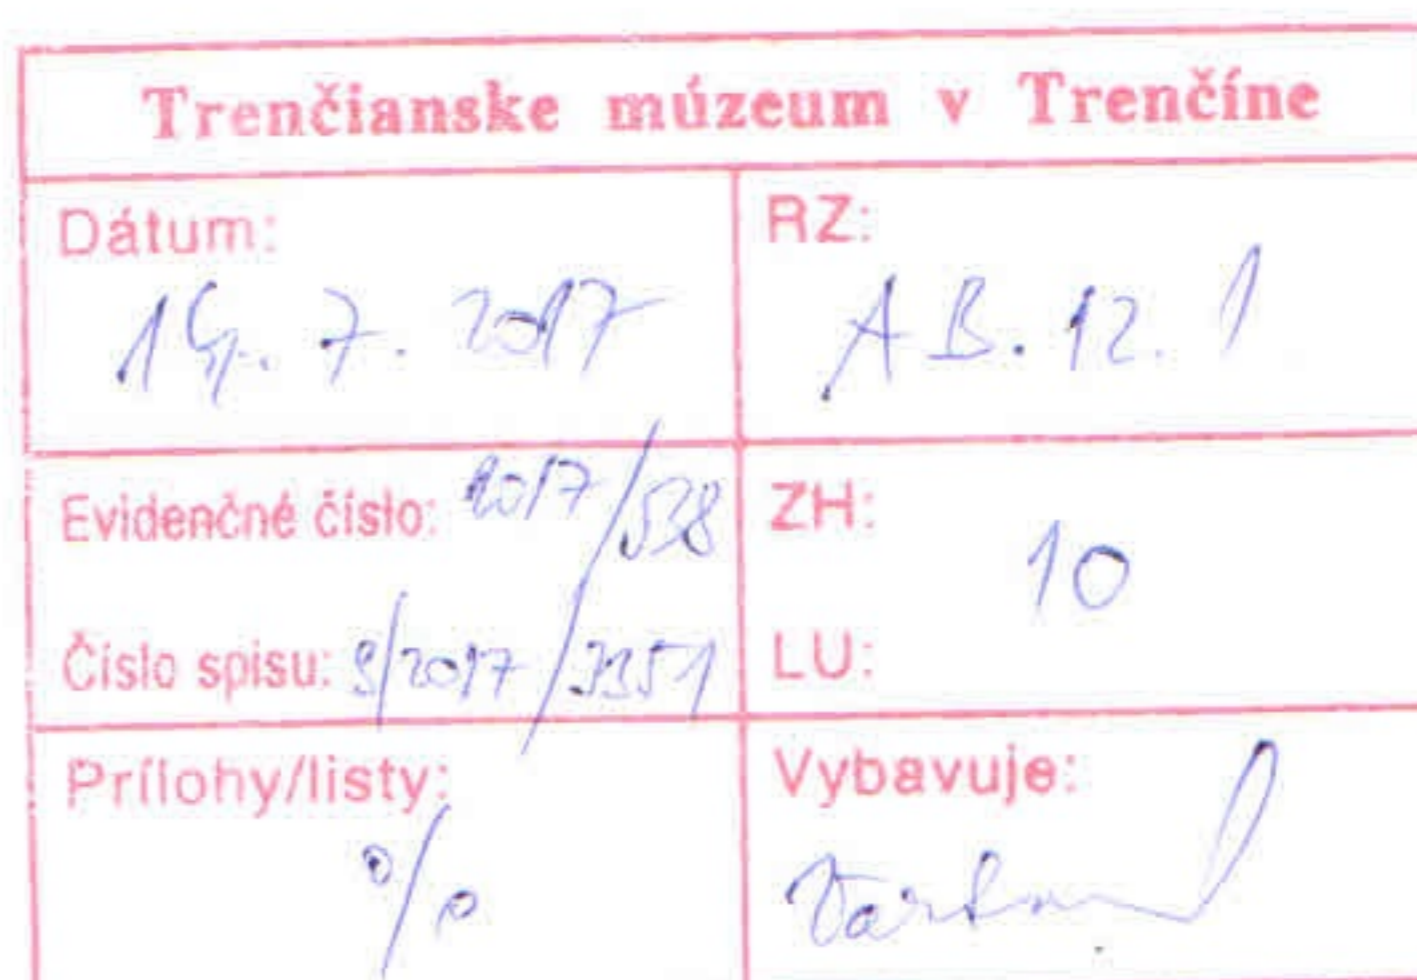 Trenčianske múzeum v Trenčíne
Dátum:
14. 7. 2017
RZ:
AB. 12. 1
Evidenčné číslo: 2017/538
Číslo spisu: 9/2017/3351
ZH:
10
LU:
Prílohy/listy:
0/0
Vybavuje: